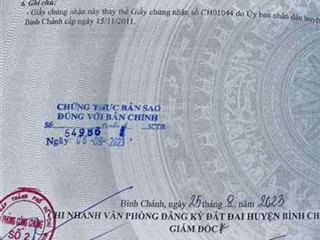 6. Ghi chú:
- Giấy chứng nhận này thay thế Giấy chứng nhận số CH01044 do Ủy ban nhân dân huyện
Bình Chánh cấp ngày 15/11/2011.
CHỨNG THỰC BẢN SAO
ĐÚNG VỚI BẢN CHÍNH
Số 54986 SCT/B
Ngày 06-09-2023
Bình Chánh, ngày 25 tháng 8 năm 2023
CHI NHÁNH VĂN PHÒNG ĐĂNG KÝ ĐẤT ĐAI HUYỆN BÌNH CH
GIÁM ĐỐC
PHÒNG CÔNG CHỨNG
SỐ 2